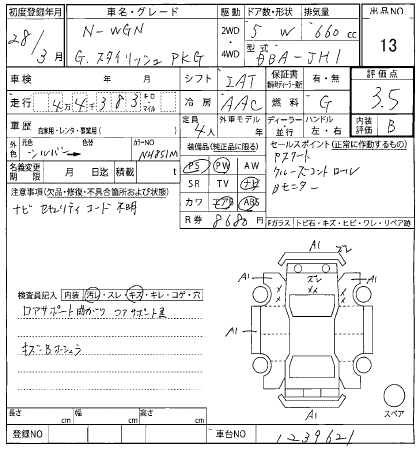 初度登録年月 車名・グレード 駆動 ドア数・形状 排気量 出品NO
28/3月 N-WGN 2WD 5 W 660cc 13
G.スタイリッシュPKG 4WD 型式 DBA-JH1
車検 年 月 シフト IAT 保証書 有・無 評価点
走行 44383 キロ マイル 冷房 AAC 燃料 G 3.5
車歴 自家用・レンタ・事業用( ) 定員 4人 外車モデル 年 ディーラー 並行 ハンドル 左・右 内装評価 B
外色 元色 シルバー 色替 カラーNO NH851M 装備品(純正品に限る) セールスポイント(正常に作動するもの)
名義変更期限 月 日 積載 t PS PW AW Pスタート
注意事項(欠品・修復・不具合箇所および状態) SR TV ナビ クルーズコントロール
ナビセキュリティコード不明 カワ エアB ABS Bモニター
R券 8680円 Fガラス トビ石・キズ・ヒビ・ワレ・リペア跡
検査員記入 内装 汚レ・スレ・キズ・キレ・コゲ・穴
コアサポート曲がり
A1 ズレ
ズレ
A1 A1
A1
A1
スペア
長さ cm 幅 cm 高さ cm
登録NO 車台NO 1239621